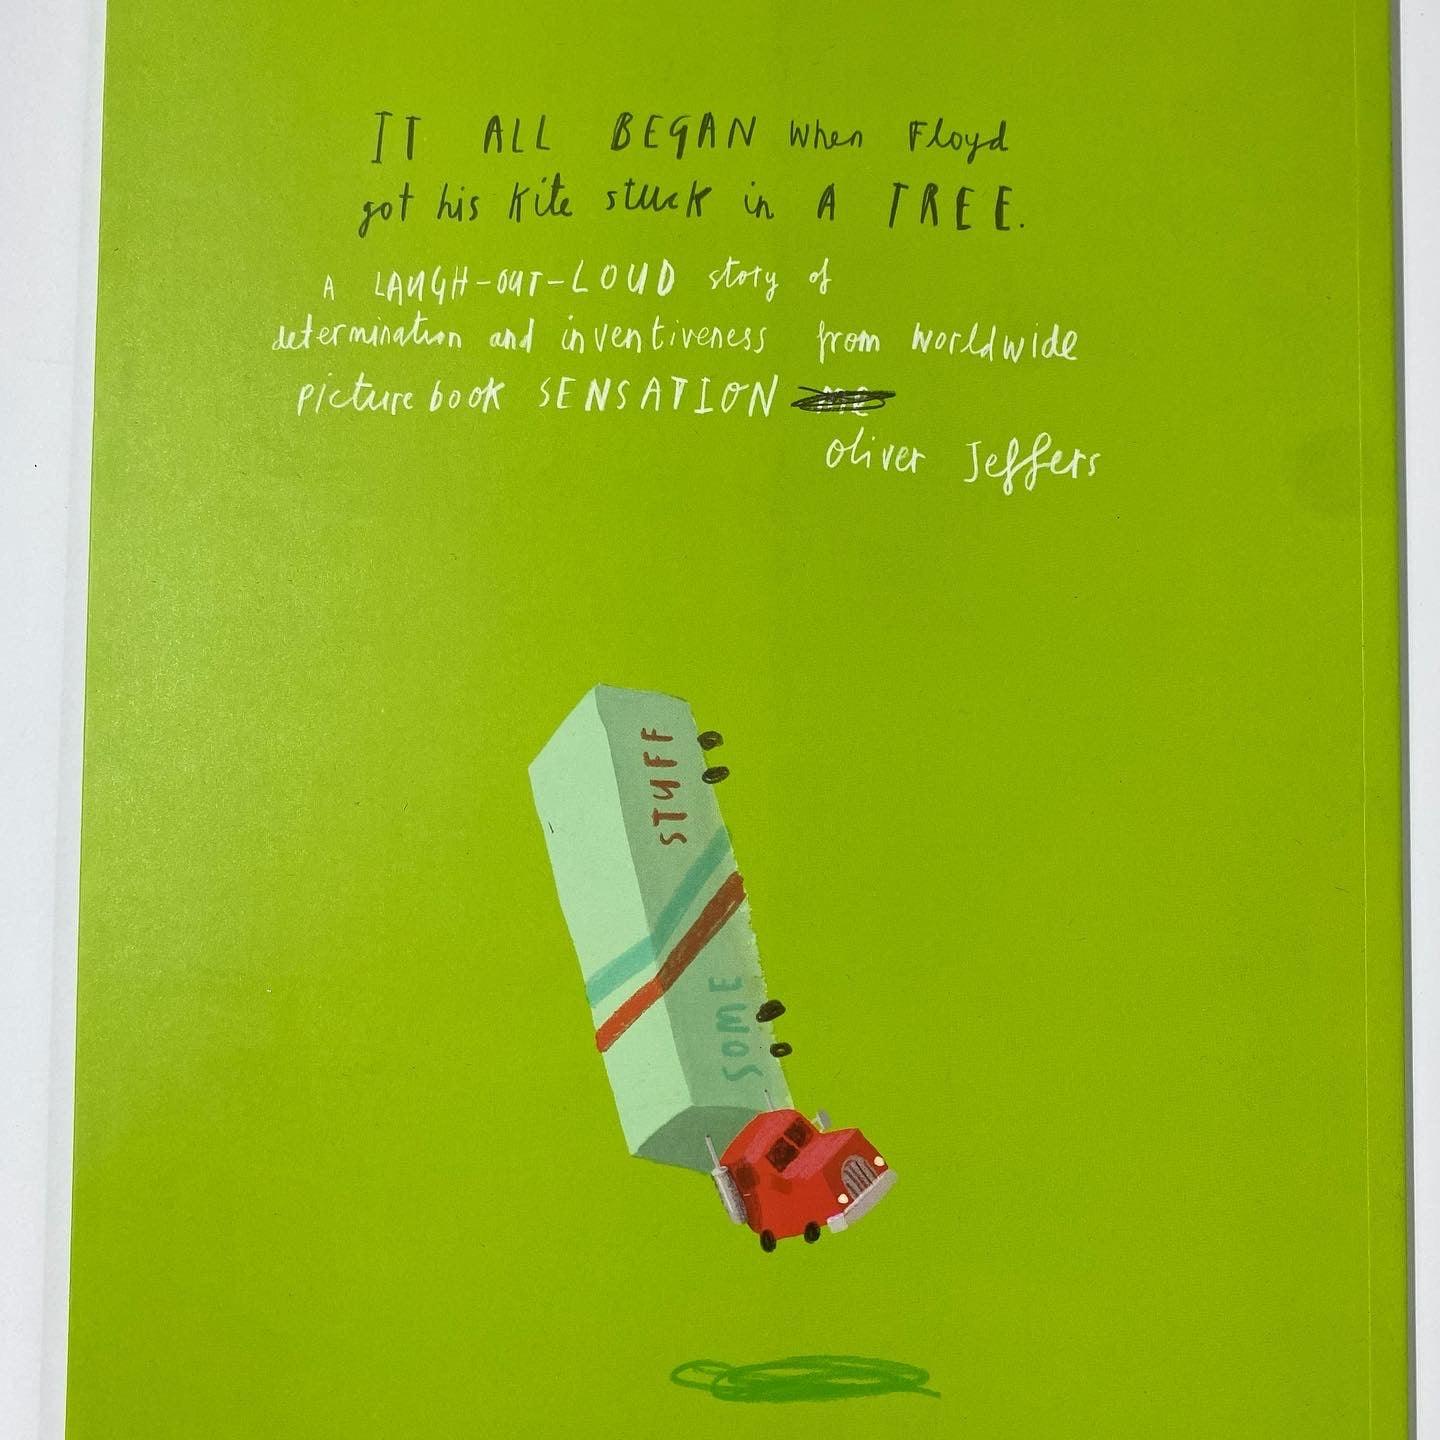 IT ALL BEGAN when Floyd
got his kite stuck in A TREE.
A LAUGH-OUT-LOUD story of
determination and inventiveness from worldwide
picture book SENSATION me
oliver Jeffers
STUFF
SOME